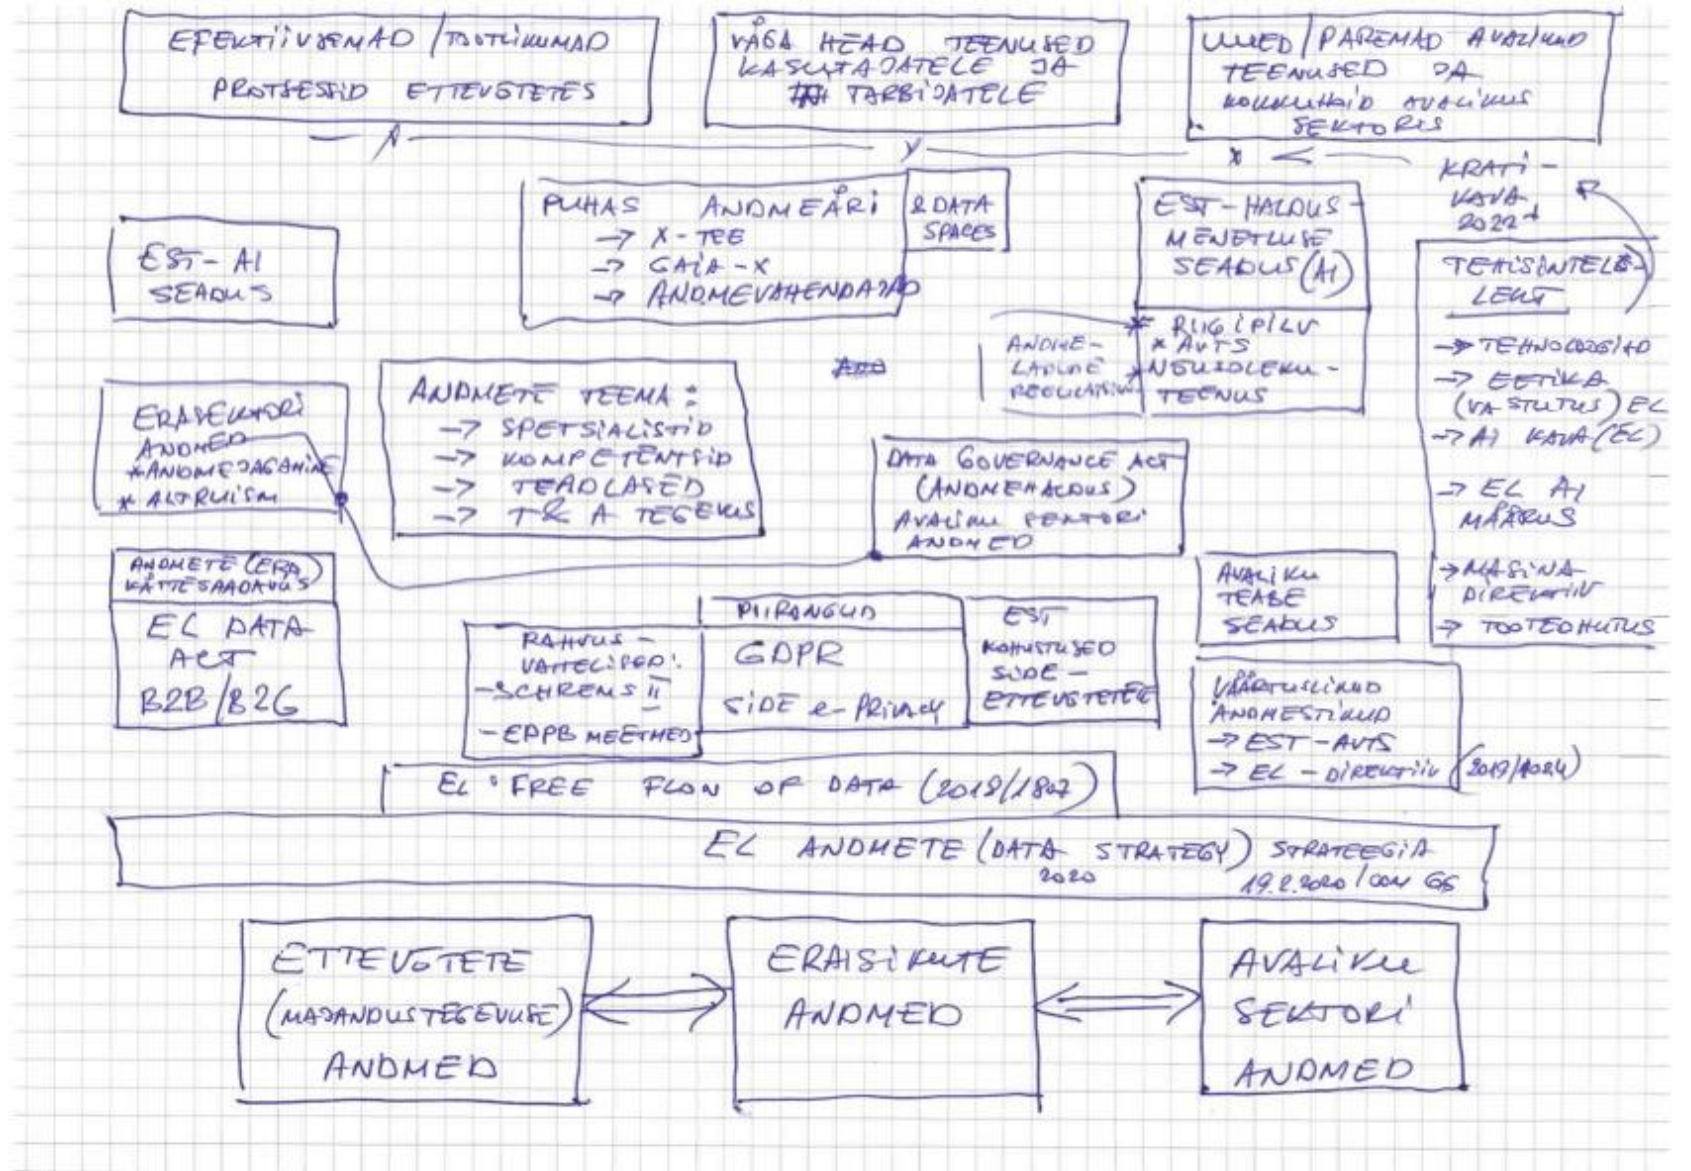 EFEKTIIVSEMAD / TOOTLIKUMAD
PROTSESSID ETTEVÕTETES
VÄGA HEAD TEENUSED
KASUTAJATELE JA
TARBIJATELE
UUED / PAREMAD AVALIKUD
TEENUSED JA
KOKKUHOID AVALIKUS
SEKTORIS
KRATI-
KAVA
2022+
EST-AI
SEADUS
PUHAS ANDMEÄRI
→ X-TEE
→ GAIA-X
→ ANDMEVAHENDAJAD
& DATA
SPACES
EST-HALDUS-
MENETLUSE
SEADUS (AI)
* RIIGIPILV
* AVTS
* NÕUSOLEKU-
TEENUS
ANDME-
LADUDE
REGULATSIOON
TEHISINTELE-
LEKT
→ TEHNOLOOGIAD
→ EETIKA
(VASTUTUS) EL
→ AI KAVA (EL)
→ EL AI
MÄÄRUS
→ MASINA
DIREKTIIV
→ TOOTEOHUTUS
ERASEKTORI
ANDMED
* ANDMEJAGAMINE
* ALTRUISM
ANDMETE TEEMA:
→ SPETSIALISTID
→ KOMPETENTSID
→ TEADLASED
→ T & A TEGEVUS
DATA GOVERNANCE ACT
(ANDMEHALDUS)
AVALIKU SEKTORI
ANDMED
ANDMETE (ERA)
KÄTTESAADAVUS
EL DATA
ACT
B2B/B2G
RAHVUS-
VAHELISED:
- SCHREMS II
- EDPB MEETMED
PIIRANGUD
GDPR
SIDE e-PRIVACY
EST
KOHUSTUSED
SIDE-
ETTEVÕTETELE
AVALIKU
TEABE
SEADUS
VÄÄRTUSLIKUD
ANDMESTIKUD
→ EST-AVTS
→ EL-DIREKTIIV (2019/1024)
EL: FREE FLOW OF DATA (2018/1807)
EL ANDMETE (DATA STRATEGY) STRATEEGIA
2020 19.2.2020 / COM 66
ETTEVÕTETE
(MAJANDUSTEGEVUSE)
ANDMED
ERAISIKUTE
ANDMED
AVALIKU
SEKTORI
ANDMED